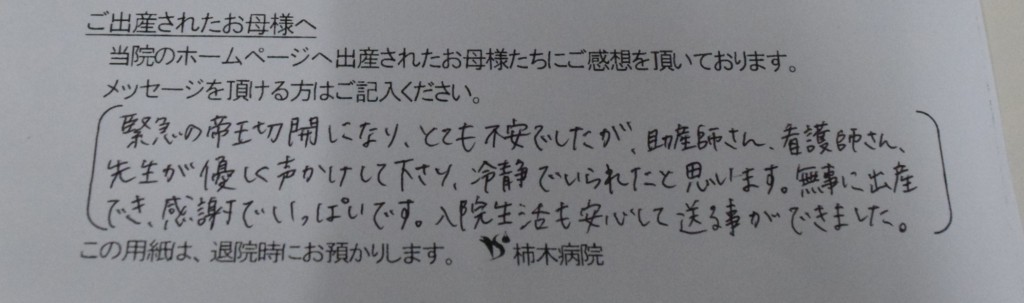 ご出産されたお母様へ
当院のホームページへ出産されたお母様たちにご感想を頂いております。
メッセージを頂ける方はご記入ください。
緊急の帝王切開になり、とても不安でしたが、助産師さん、看護師さん、
先生が優しく声かけして下さり、冷静でいられたと思います。無事に出産
でき、感謝でいっぱいです。入院生活も安心して送る事ができました。
この用紙は、退院時にお預かりします。 柿木病院